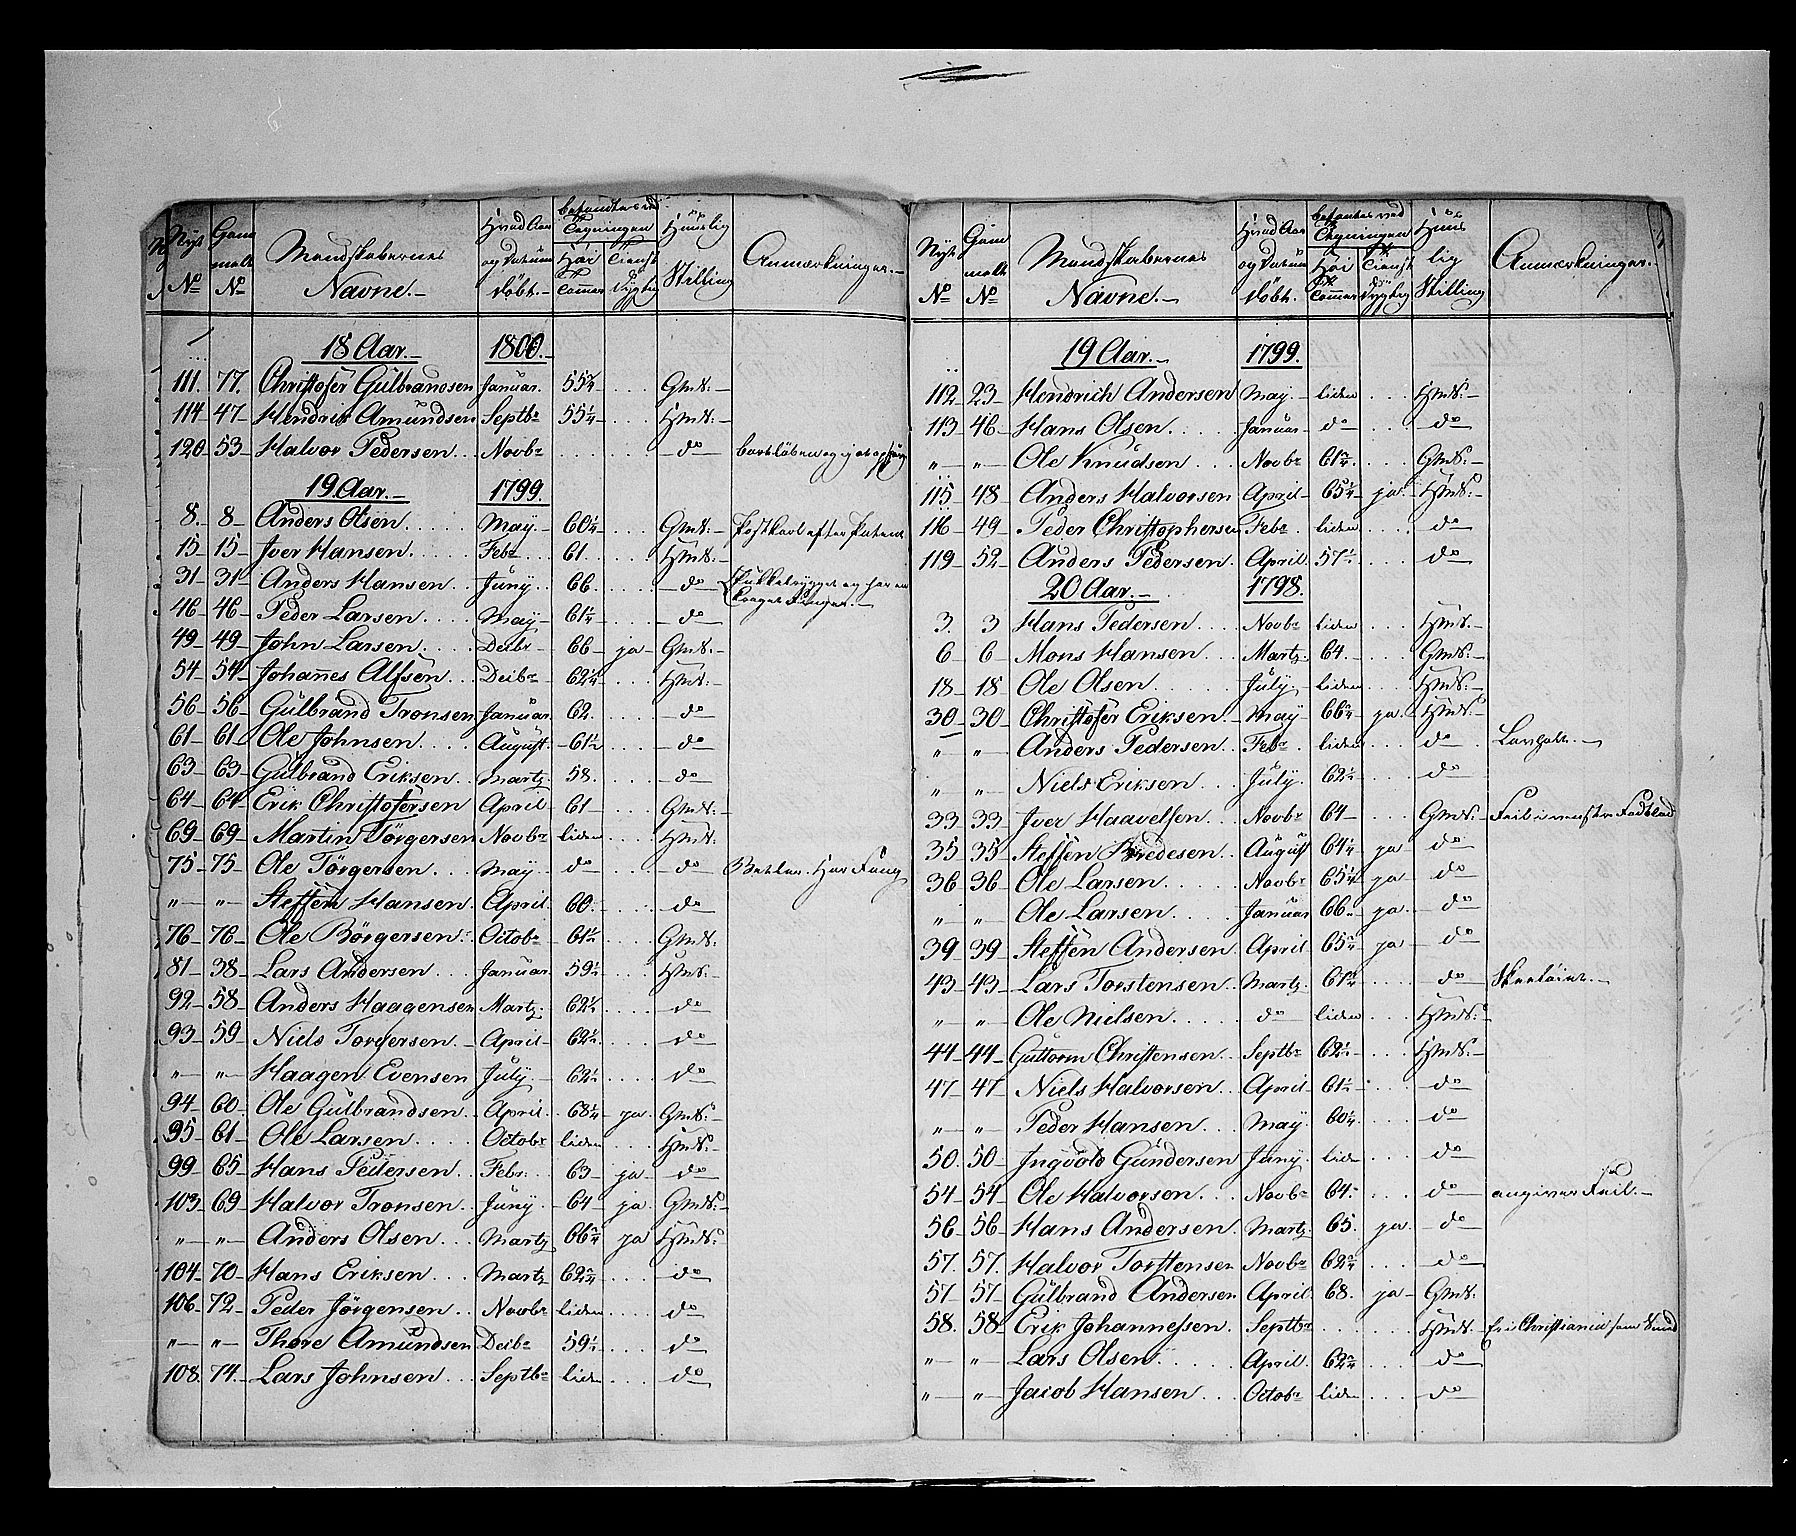 Nyt No | Gam melt No | Mandskabernes Navne.- | Hvad Aar og Datum døbt.- | befandtes ved Tegningen Høi Tommer | Tienst dygtig | Huuslig Stilling | Anmærkninger.-
18 Aar.- 1800.-
111. 77. Christofer Gülbrandsen Januar. 55 3/4 Gmd:-
114 47- Hendrik Amündsen Septbr 55 1/4 Hmd:-
120 53- Halvor Pedersen Novbr do
19 Aar.- 1799.
8. 8- Anders Olsen May.- 60 1/4 Gmd:-
15- 15- Iver Hansen Febr 61. Hmd:-
31- 31- Anders Hansen Juny. 66. do
Finger.-
46- 46- Peder Larsen May- 61 1/4 do
49- 49- John Larsen Decbr 66 ja- Gmd:-
54- 54- Johannes Alfsen Decbr 62 1/4 Hmd:-
56- 56- Gülbrand Tronsen Januar 62. do
61- 61- Ole Johnsen August. 61 1/2 do
63- 63- Gülbrand Eriksen Martz 58. do
64- 64- Erik Christofersen April 61- Gmd:-
69- 69- Martin Törgersen Novbr liden Hmd:
75- 75- Ole Törgersen May do do
"- "- Steffen Hansen April. 60.- do
76- 76- Ole Börgersen Octobr 61 1/2 Gmd:
81- 38- Lars Andersen Januar 59 1/2 Hmd:-
92- 58- Anders Haagensen Martz. 62 1/4 do
93- 59- Niels Torgersen April- 62 1/2 do
"- "- Haagen Evensen July.- 62 1/2 do
94- 60- Ole Gülbrandsen April. 68 1/4 ja. Gmd:-
95- 61- Ole Larsen Octobr liden Hmd:-
99- 65- Hans Pedersen Febr. 63 ja- do
103- 69- Halvor Tronsen Juny. 64 ja Gmd:-
"- "- Anders Olsen Martz 66 3/4 ja Hmd:
104- 70- Hans Eriksen Martz 62 3/4 do
106- 72- Peder Jörgensen Novbr liden do
"- "- Thore Amündsen Decbr 59 1/2 do
108. 74- Lars Johnsen Septbr liden do
Nyt No | Gam melt No | Mandskabernes Navne.- | Hvad Aar og Datum døbt. | befantes ved Tegningen Høi Tommer | Tienst dygtig | Huus lig Stilling | Anmærkninger.-
19 Aar.- 1799.
112- 23- Hendrich Andersen May- liden Hmd:-
113- 46- Hans Olsen Januar do do
"- "- Ole Knudsen Novbr 61 3/4 Gmd:-
115- 48- Anders Halvorsen April- 65 1/4 ja- Hmd:-
116- 49- Peder Christophersen Febr liden do
119- 52- Anders Pedersen April. 57 1/2 do
20 Aar.- 1798.
3. 3 Hans Pedersen Novbr liden Hmd:-
6- 6- Mons Hansen Martz. 64.- Gmd:-
18- 18- Ole Olsen July- liden Hmd:-
30- 30- Christofer Eriksen May- 66 3/4 ja. Hmd:
" "- Anders Pedersen Febr. liden do
" "- Niels Eriksen July. 62 1/2 do
33- 33- Iver Haavelsen Novbr 64- Gmd:- Feil i venstre Fodblad
35- 35- Steffen Bredesen August 64 1/4 ja do
36- 36- Ole Larsen Novbr 65 1/4 ja- do
" "- Ole Larsen Januar 66.- ja- do
39- 39- Steffen Andersen April 65 3/4 ja do
43- 43- Lars Torstensen Martz. 61 3/4 do
"- "- Ole Nielsen do liden Hmd:-
44- 44- Guttorm Christensen Septbr 62 1/2 Hmd:-
47- 47- Niels Halvorsen April- 61 1/2 do
"- "- Peder Hansen May 60 1/4 do
50. 50- Ingvold Gündersen Juny. lid do
54- 54- Ole Halvorsen Novbr 64.- do angiver Feil.-
56- 56- Hans Andersen Martz- 65. ja- do
57. 57. Halvor Torstensen Novbr 62 3/4 do
57- 57- Gülbrand Andersen April. 68. ja- Gmd:
58. 58- Erik Johannessen Septbr Hmd.- Er i Christiania som
"- "- Lars Olsen April. 62 3/4 do
"- "- Jacob Hansen Octobr liden do